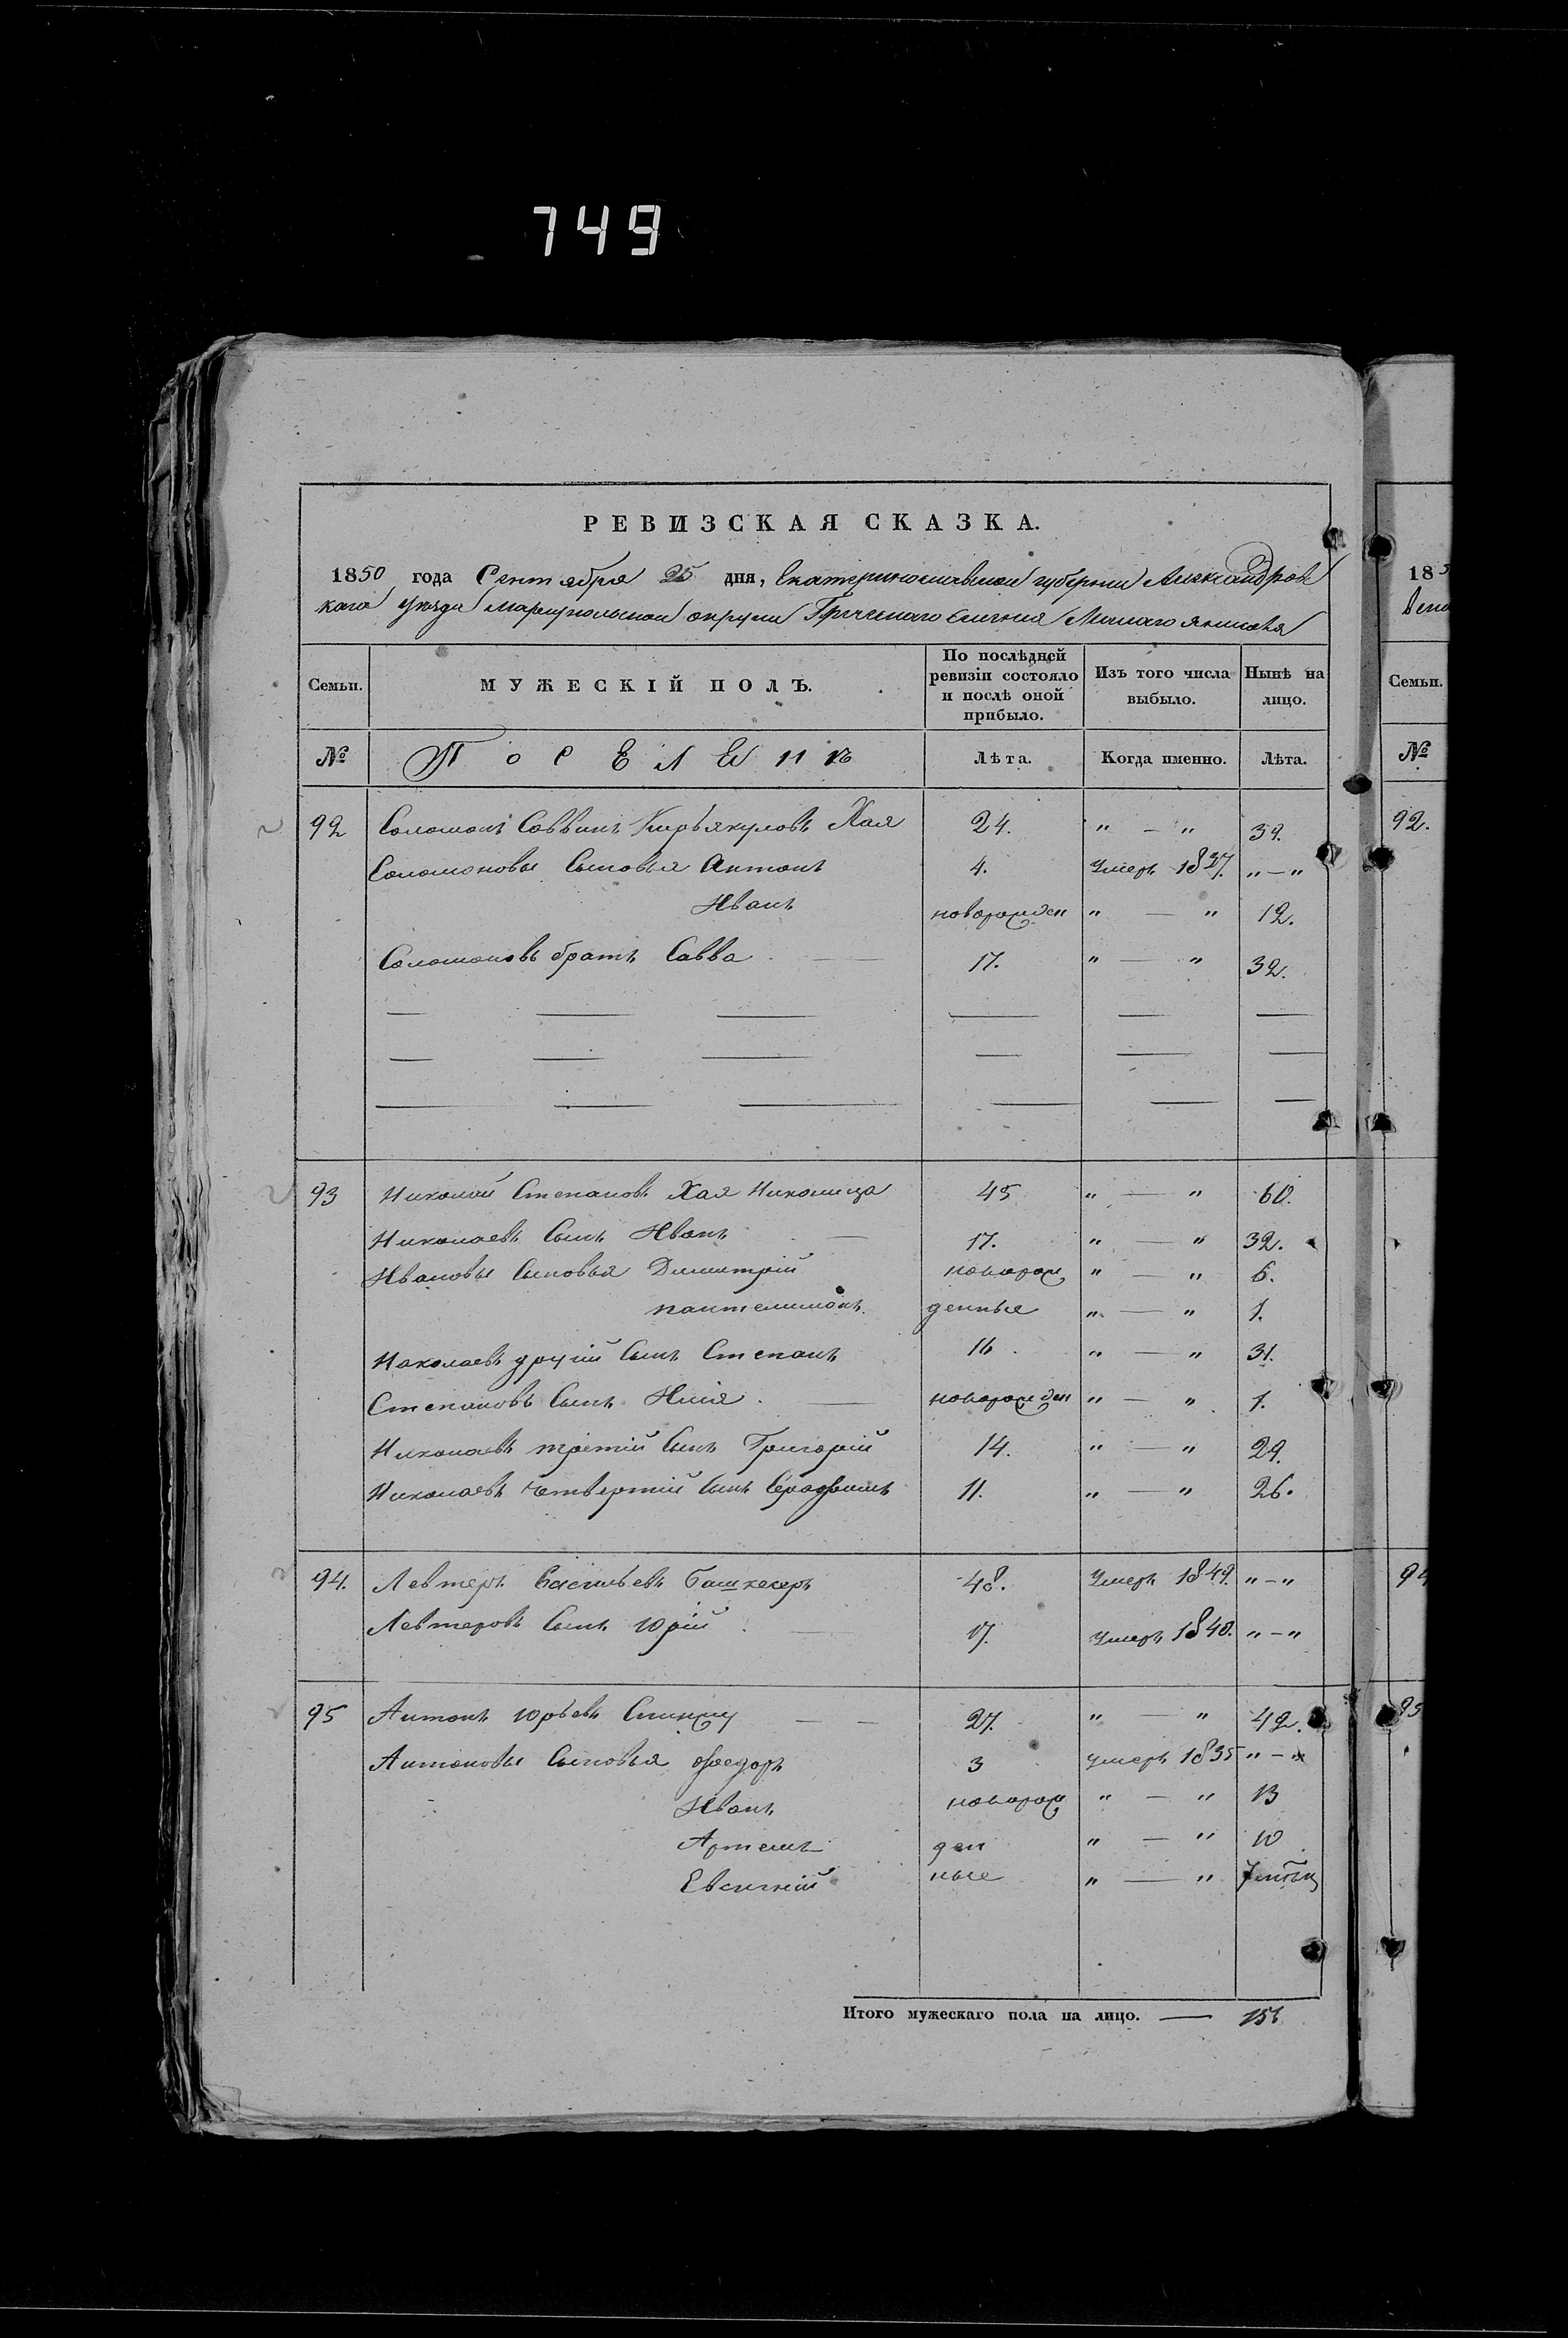 749
РЕВИЗСКАЯ СКАЗКА.
1850 года Сентября 25 дня, Екатеринославской губернии Александров
каго уезда Мариупольской округи Греческаго селения Малаго Янисоля
Семьи. МУЖЕСКІЙ ПОЛЪ. По послѣдней ревизіи состояло и послѣ оной прибыло. Изъ того числа выбыло. Нынѣ на лицо.
№ Поселенъ Лѣта. Когда именно. Лѣта.
92 Соломонъ Саввинъ Кирьякуловъ Хая 24. " — " 39.
Соломоновы Сыновья Антонъ 4. Умеръ 1837. " — "
Иванъ новорожден " — " 12.
Соломоновъ братъ Савва 17. " — " 32.
93 Николай Степановъ Хая Николица 45 " — " 60.
Николаевъ Сынъ Иванъ 17. " — " 32.
Ивановы Сыновья Димитрій новорож " — " 6.
пантелимонъ денные " — " 1.
Николаевъ другій Сынъ Степанъ 16. " — " 31.
Степановъ Сынъ Илія новорожден " — " 1.
Николаевъ третій Сынъ Григорій 14. " — " 29.
Николаевъ четвертій Сынъ 11. " — " 26.
94. Левтеръ Васильевъ Башкекеръ 48. Умеръ 1849. " — "
Левтеровъ Сынъ Юрій 17. Умеръ 1840. " — "
95 Антонъ Юрьевъ 27. " — " 42.
Антоновы Сыновья Феодоръ 3 умеръ 1835 " — "
Иванъ новорож " — " 13
Артемъ ден " — " 10
Евсигній ные " — " 7
Итого мужескаго пола на лицо. —
185
Семьи.
№
92.
94
95